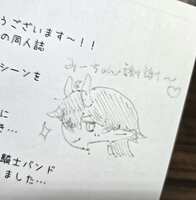 うございます〜！！
の同人誌
シーンを
に
き…
騎士バンド
ました…
みーちゃん謝謝〜♡